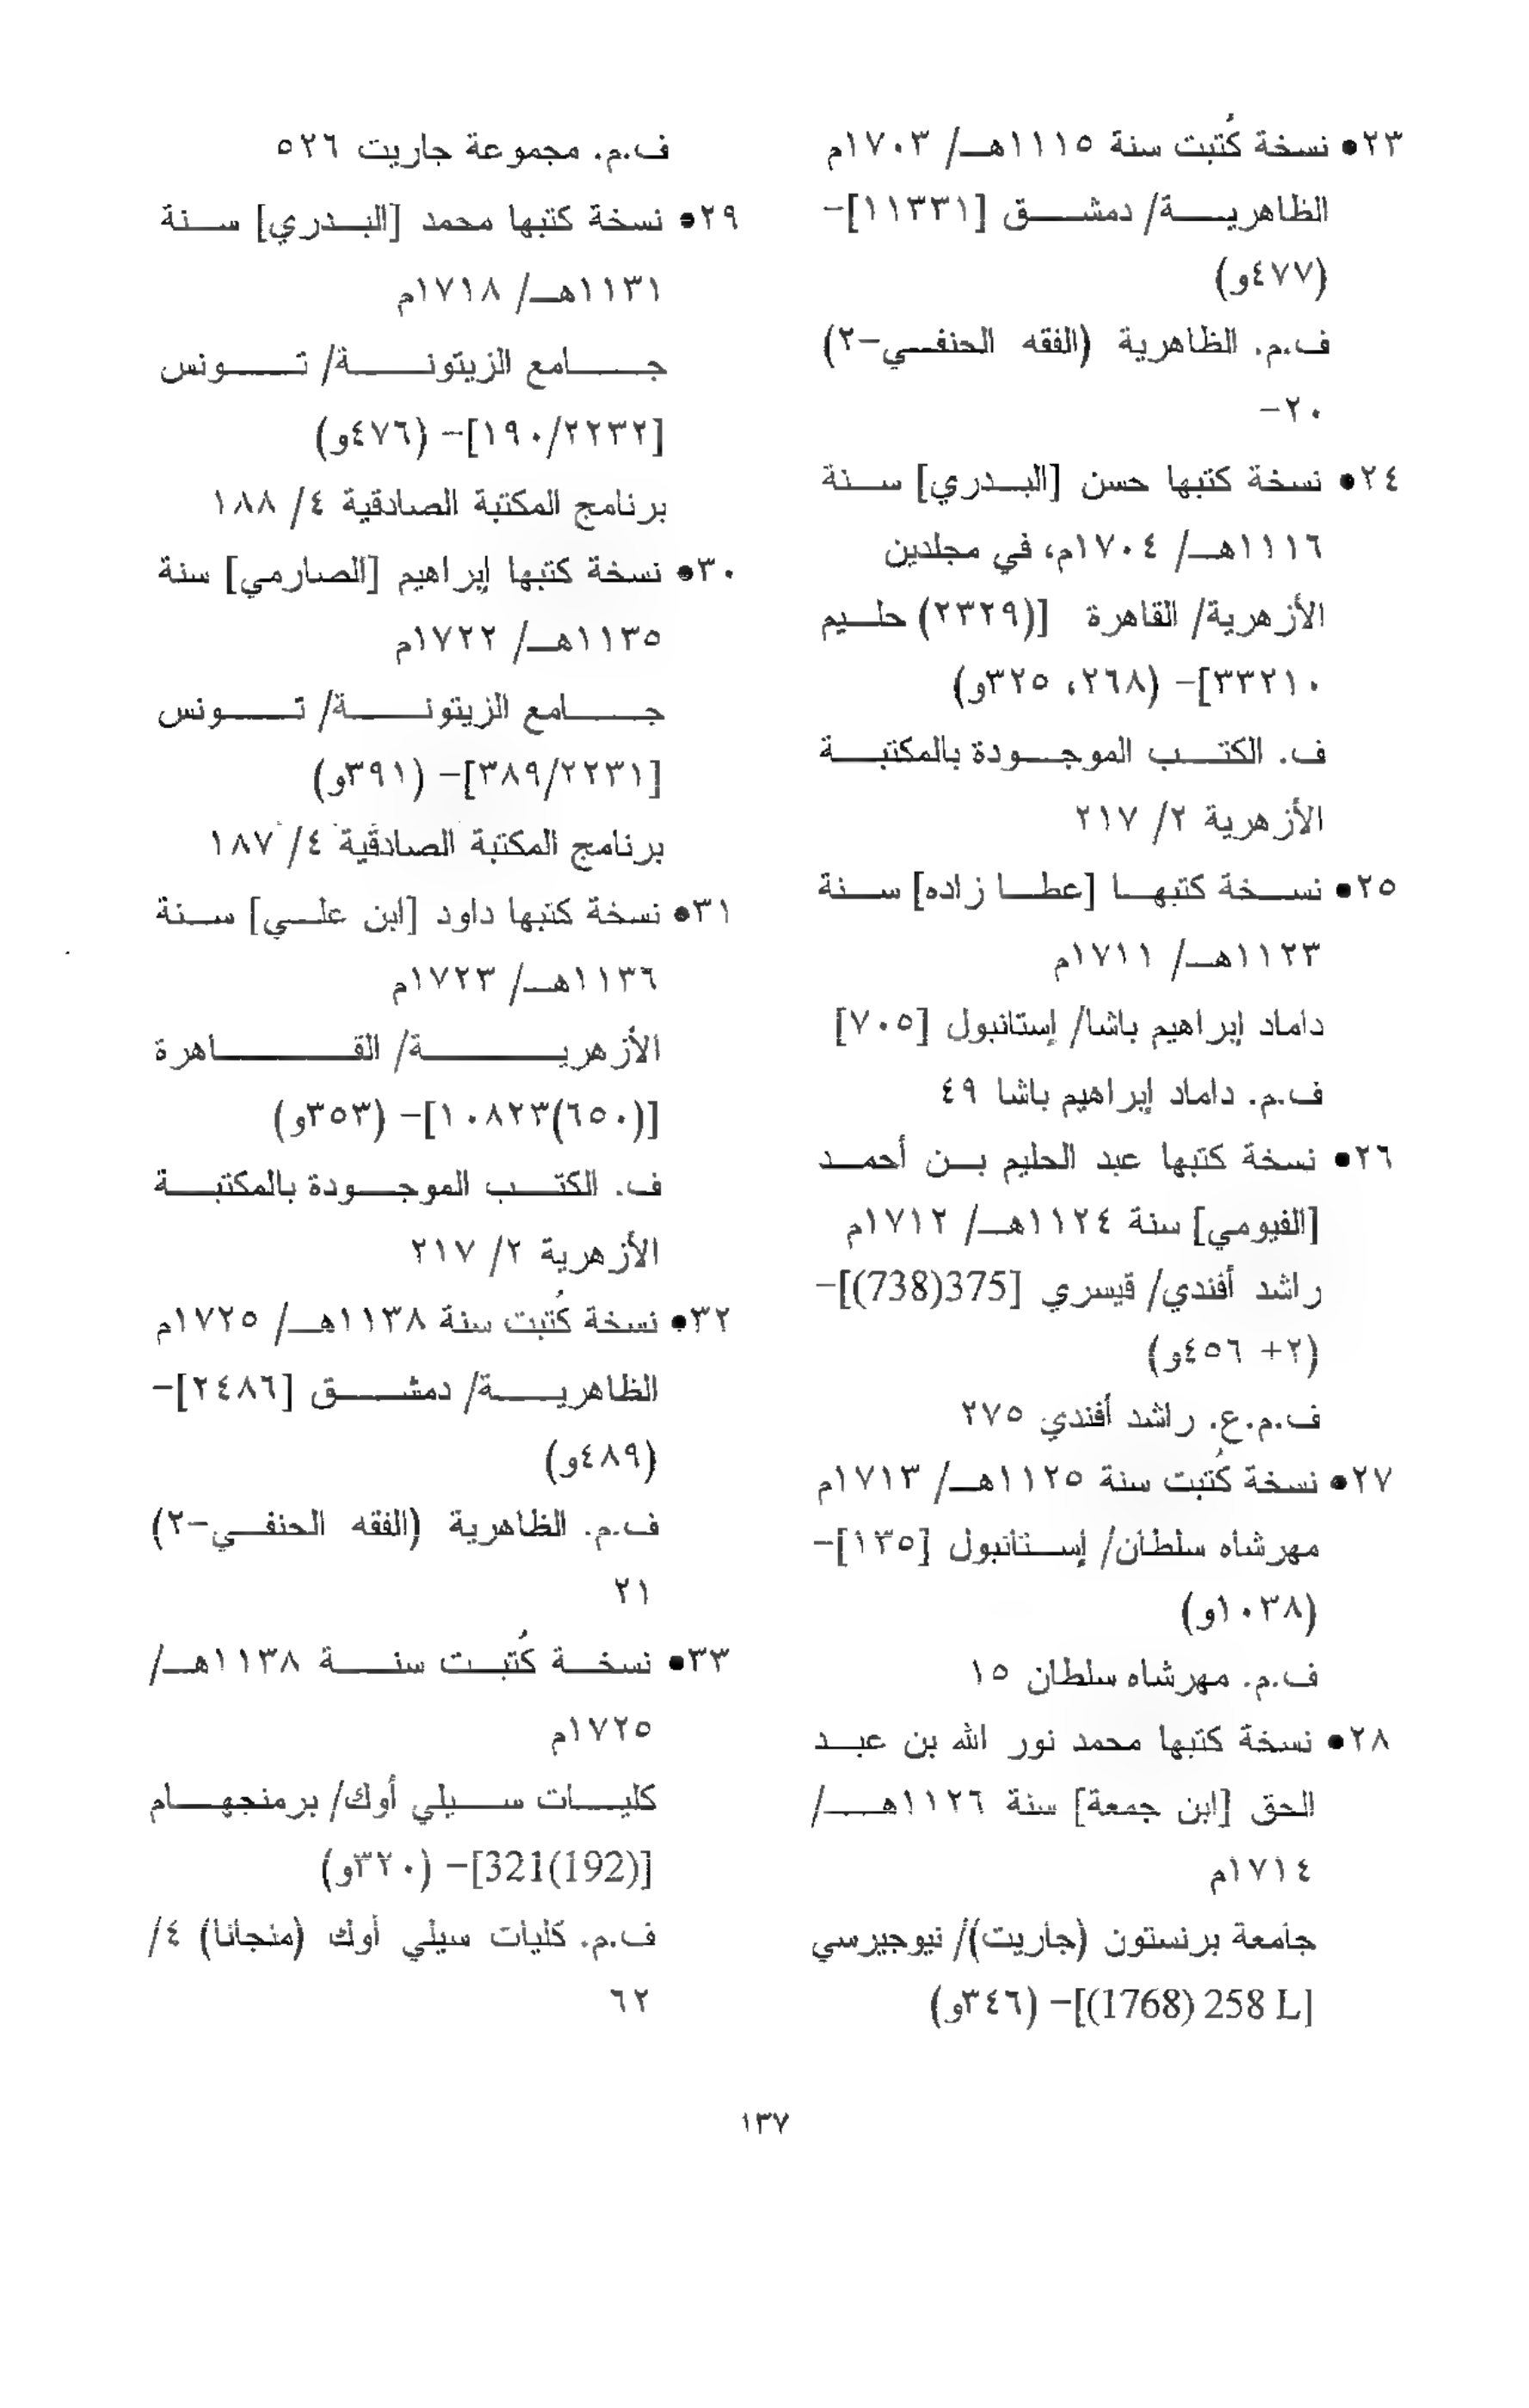 ٢٣● نسخة كُتبت سنة ١١١٥هـ/ ١٧٠٣م
الظاهرية/ دمشق [١١٣٣١]-
(٤٧٧و)
ف.م. الظاهرية (الفقه الحنفي-٢)
٢٠-
٢٤● نسخة كتبها حسن [البدري] سنة
١١١٦هـ/ ١٧٠٤م، في مجلدين
الأزهرية/ القاهرة [(٢٣٢٩) حليم
٣٣٢١٠]- (٢٦٨، ٣٢٥و)
ف. الكتب الموجودة بالمكتبة
الأزهرية ٢/ ٢١٧
٢٥● نسخة كتبها [عطا زاده] سنة
١١٢٣هـ/ ١٧١١م
داماد إبراهيم باشا/ إستانبول [٧٠٥]
ف.م. داماد إبراهيم باشا ٤٩
٢٦● نسخة كتبها عبد الحليم بن أحمد
[الفيومي] سنة ١١٢٤هـ/ ١٧١٢م
راشد أفندي/ قيسري [375(738)]-
(٢+ ٤٥٦و)
ف.م.ع. راشد أفندي ٢٧٥
٢٧● نسخة كُتبت سنة ١١٢٥هـ/ ١٧١٣م
مهرشاه سلطان/ إستانبول [١٣٥]-
(١٠٣٨و)
ف.م. مهرشاه سلطان ١٥
٢٨● نسخة كتبها محمد نور الله بن عبد
الحق [ابن جمعة] سنة ١١٢٦هـ/
١٧١٤م
جامعة برنستون (جاريت)/ نيوجيرسي
[258 L (1768)]- (٣٤٦و)
ف.م. مجموعة جاريت ٥٢٦
٢٩● نسخة كتبها محمد [البدري] سنة
١١٣١هـ/ ١٧١٨م
جامع الزيتونة/ تونس
[١٩٠/٢٢٣٢]- (٤٧٦و)
برنامج المكتبة الصادقية ٤/ ١٨٨
٣٠● نسخة كتبها إبراهيم [الصارمي] سنة
١١٣٥هـ/ ١٧٢٢م
جامع الزيتونة/ تونس
[٣٨٩/٢٢٣١]- (٣٩١و)
برنامج المكتبة الصادقية ٤/ ١٨٧
٣١● نسخة كتبها داود [ابن علي] سنة
١١٣٦هـ/ ١٧٢٣م
الأزهرية/ القاهرة
[(٦٥٠)١٠٨٢٣]- (٣٥٣و)
ف. الكتب الموجودة بالمكتبة
الأزهرية ٢/ ٢١٧
٣٢● نسخة كُتبت سنة ١١٣٨هـ/ ١٧٢٥م
الظاهرية/ دمشق [٢٤٨٦]-
(٤٨٩و)
ف.م. الظاهرية (الفقه الحنفي-٢)
٢١
٣٣● نسخة كُتبت سنة ١١٣٨هـ/
١٧٢٥م
كليات سيلي أوك/ برمنجهام
[321(192)]- (٣٢٠و)
ف.م. كليات سيلي أوك (منجانا) ٤/
٦٢
١٣٧